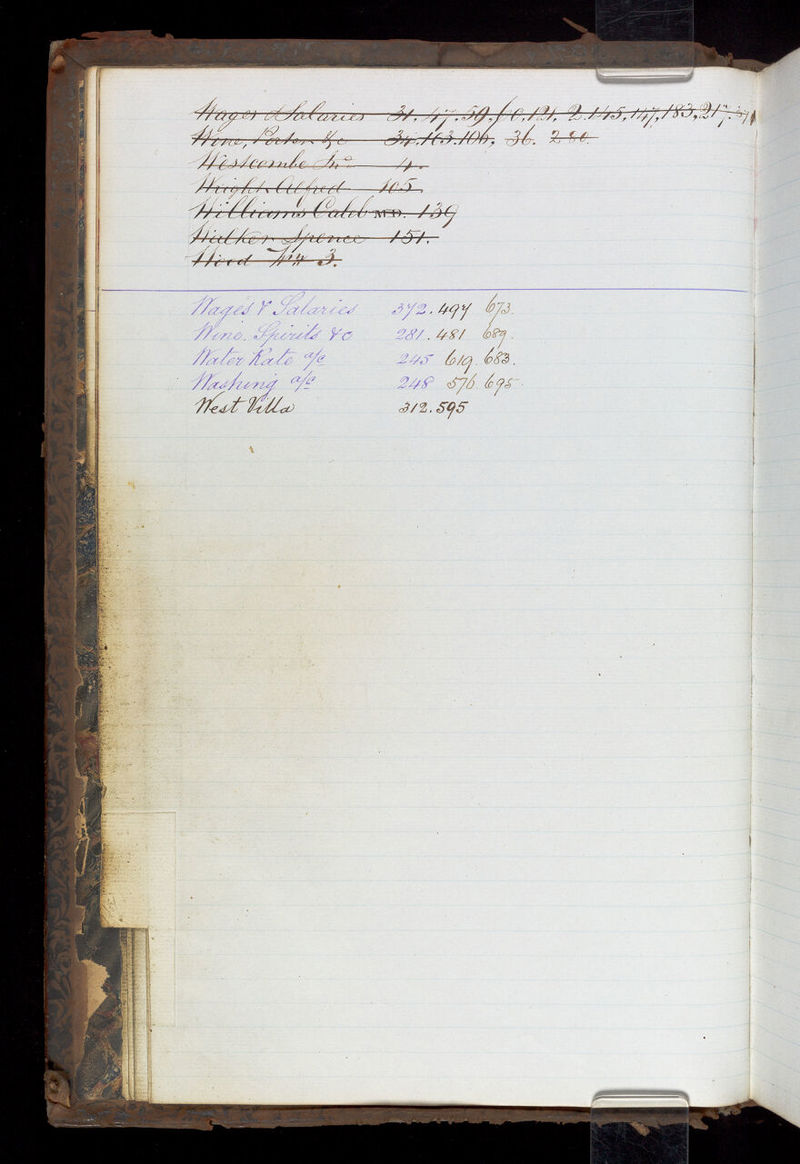 Wages & Salaries 31. 47. 59. 121. 2. 145, 147, 183, 217.
Wine, Porter &c 34. 103. 106, 36. 280.
Westcombe 4.
Wright Alfred 105.
Williams Caleb MD. 139
Walker Spence 151.
Wood Wm 3.
Wages & Salaries 372. 497 673.
Wine, Spirits &c 281. 481 689.
Water Rate a/c 245 619 683.
Washing a/c 248 576 695
West Villa 312. 595